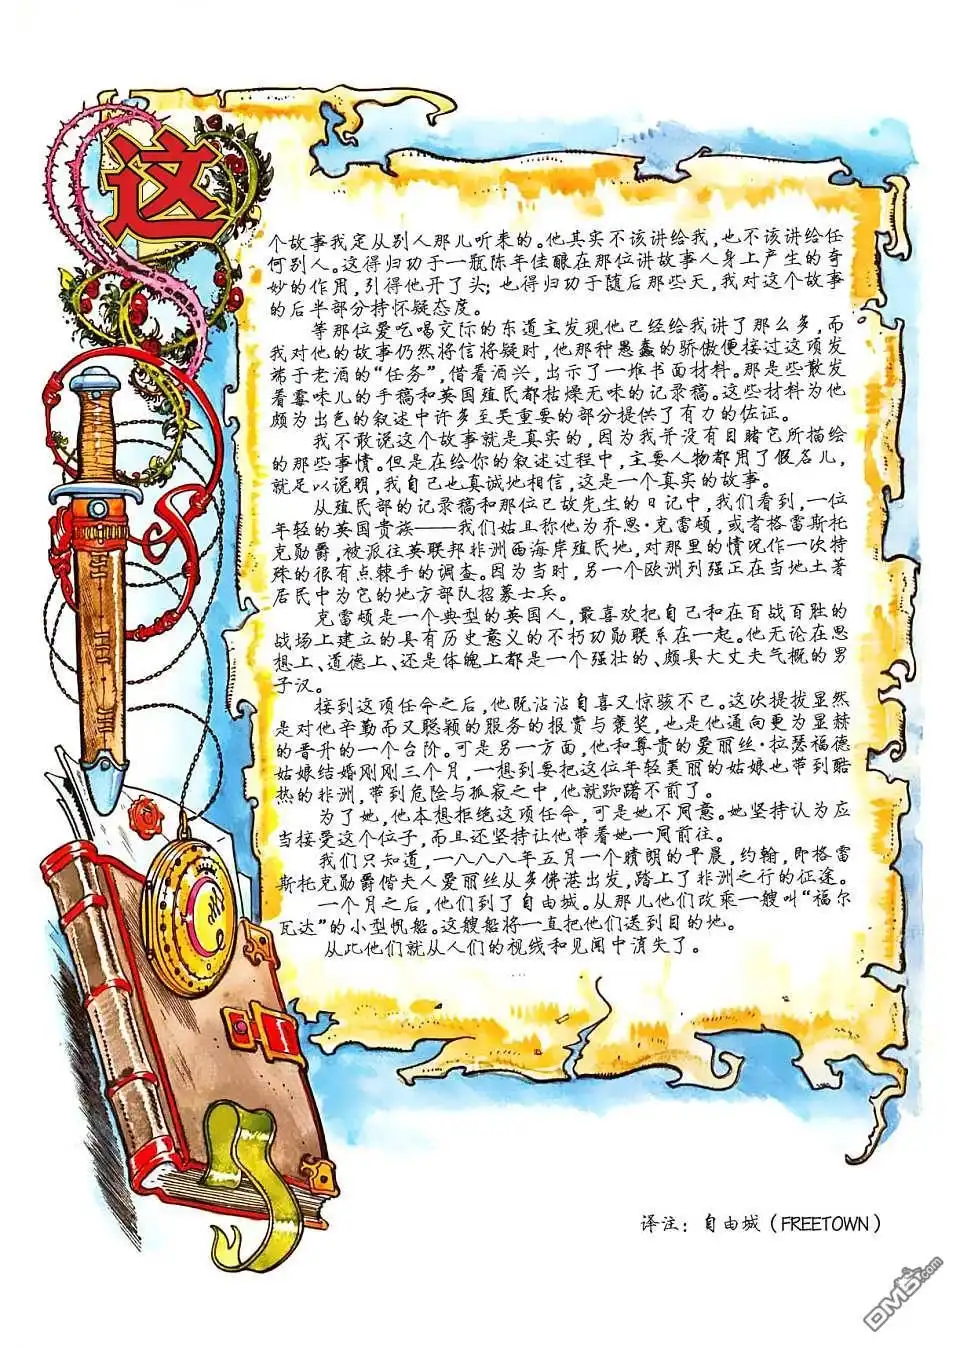 这
个故事我定从别人那儿听来的。他其实不该讲给我，也不该讲给任
何别人。这得归功于一瓶陈年佳酿在那位讲故事人身上产生的奇
妙的作用，引得他开了头；也得归功于随后那些天，我对这个故事
的后半部分持怀疑态度。
等那位爱吃喝交际的东道主发现他已经给我讲了那么多，而
我对他的故事仍然将信将疑时，他那种愚蠢的骄傲便接过这项发
端于老酒的“任务”，借着酒兴，出示了一堆书面材料。那是些散发
着霉味儿的手稿和英国殖民都枯燥无味的记录稿。这些材料为他
颇为出色的叙述中许多至关重要的部分提供了有力的佐证。
我不敢说这个故事就是真实的，因为我并没有目睹它所描绘
的那些事情。但是在给你的叙述过程中，主要人物都用了假名儿，
就足以说明，我自己也真诚地相信，这是一个真实的故事。
从殖民部的记录稿和那位已故先生的日记中，我们看到，一位
年轻的英国贵族——我们姑且称他为乔思·克雷顿，或者格雷斯托
克勋爵，被派往英联邦非洲西海岸殖民地，对那里的情况作一次特
殊的很有点棘手的调查。因为当时，另一个欧洲列强正在当地土著
居民中为它的地方部队招募士兵。
克雷顿是一个典型的英国人，最喜欢把自己和在百战百胜的
战场上建立的具有历史意义的不朽功勋联系在一起。他无论在思
想上、道德上、还是体魄上都是一个强壮的、颇具大丈夫气概的男
子汉。
接到这项任命之后，他既沾沾自喜又惊骇不已。这次提拔显然
是对他辛勤而又聪颖的服务的报赏与褒奖，也是他通向更为显赫
的晋升的一个台阶。可是另一方面，他和尊贵的爱丽丝·拉瑟福德
姑娘结婚刚刚三个月，一想到要把这位年轻美丽的姑娘也带到酷
热的非洲，带到危险与孤寂之中，他就踟躇不前了。
为了她，他本想拒绝这项任命，可是她不同意。她坚持认为应
当接受这个位子，而且还坚持让他带着她一同前往。
我们只知道，一八八八年五月一个晴朗的早晨，约翰，即格雷
斯托克勋爵偕夫人爱丽丝从多佛港出发，踏上了非洲之行的征途。
一个月之后，他们到了自由城。从那儿他们改乘一艘叫“福尔
瓦达”的小型帆船。这艘船将一直把他们送到目的地。
从此他们就从人们的视线和见闻中消失了。
译注：自由城（FREETOWN）
DM5.com